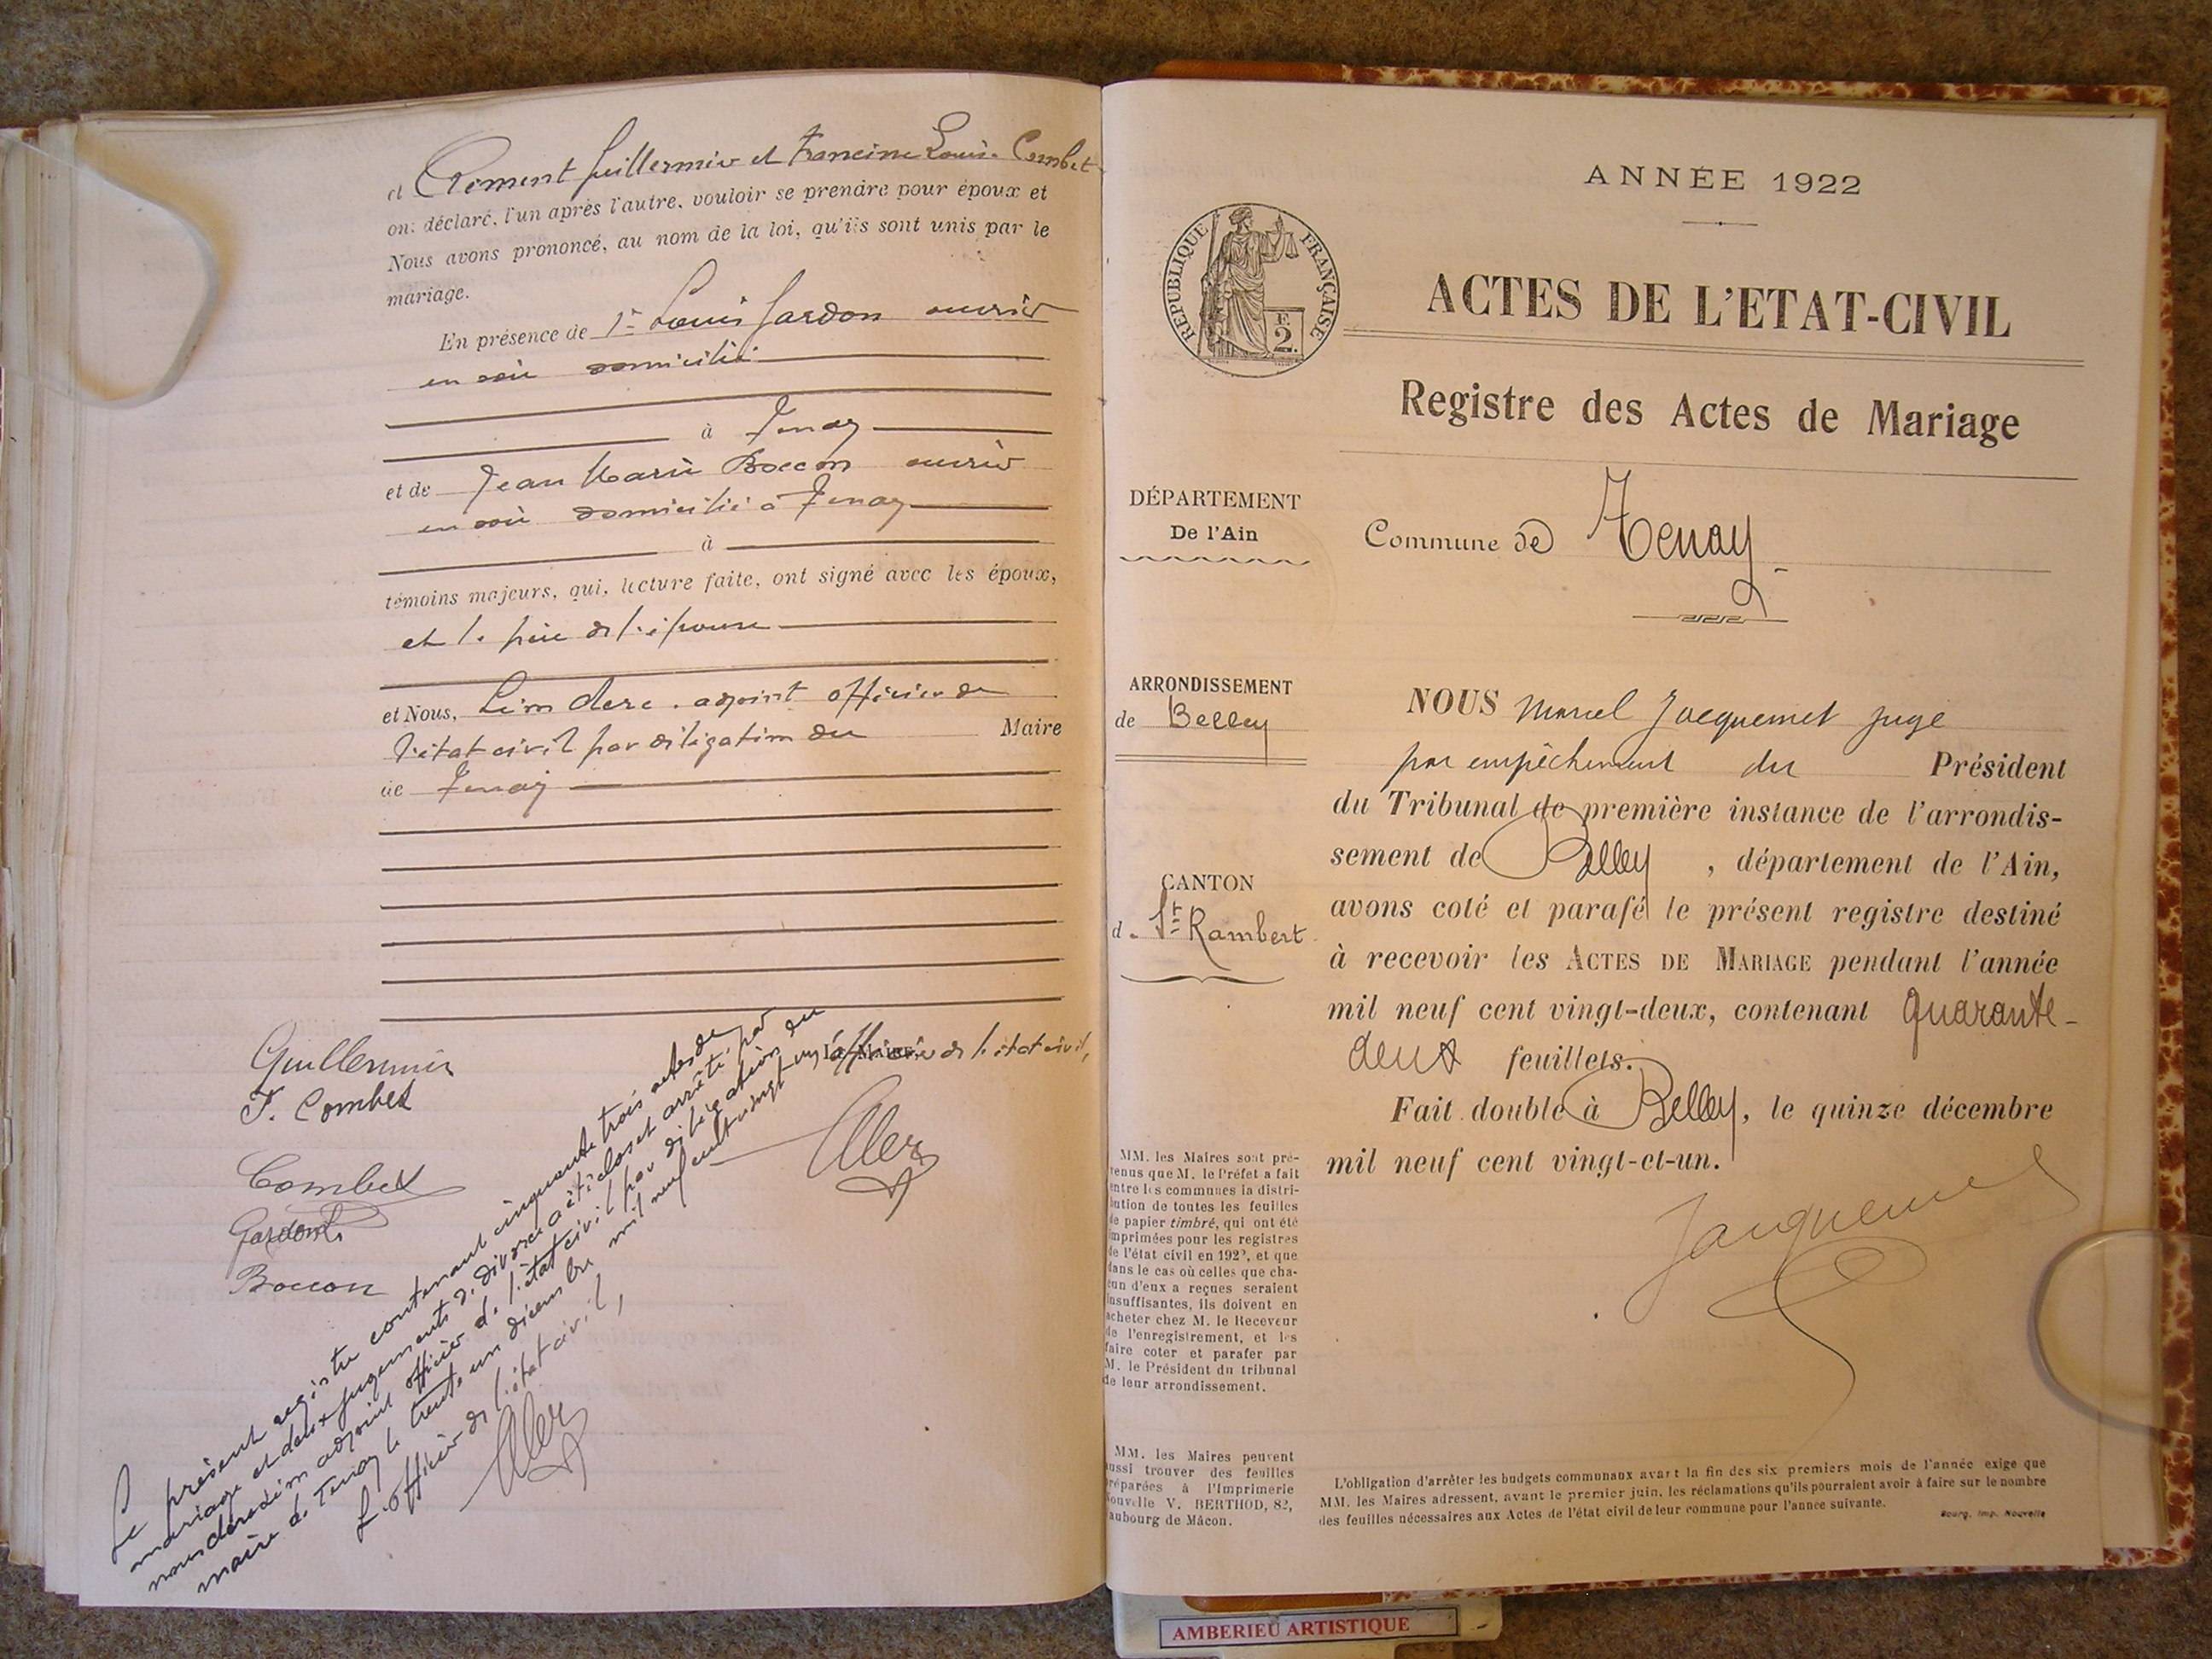 et Clément Guillermin et Francine Louise Combet
ont déclaré, l'un après l'autre, vouloir se prendre pour époux et
Nous avons prononcé, au nom de la loi, qu'ils sont unis par le
mariage.
En présence de 1° Louis Gardon ouvrier
en soie domicilié
à Tenay
et de Jean Marie Boccon ouvrier
en soie domicilié à Tenay
à
témoins majeurs, qui, lecture faite, ont signé avec les époux,
et le père de l'épouse
et Nous, Léon Clerc adjoint officier de
l'état civil par délégation du Maire
de Tenay
L'officier de l'état civil,
Guillermin
F. Combet
Combet
Gardon L.
Boccon
Clerc
Le présent registre contenant cinquante trois actes de
mariage et deux jugements de divorce a été clos et arrêté par
nous Clerc Léon adjoint officier de l'état civil par délégation du
maire de Tenay le trente un décembre mil neuf cent vingt un
L'officier de l'état civil,
Clerc
ANNÉE 1922
RÉPUBLIQUE FRANÇAISE
2F.
ACTES DE L'ETAT-CIVIL
Registre des Actes de Mariage
DÉPARTEMENT
De l'Ain
Commune de Tenay
ARRONDISSEMENT
de Belley
CANTON
de St Rambert
NOUS Marcel Jacquemet juge
par empêchement du Président
du Tribunal de première instance de l'arrondis-
sement de Belley, département de l'Ain,
avons coté et parafé le présent registre destiné
à recevoir les ACTES DE MARIAGE pendant l'année
mil neuf cent vingt-deux, contenant quarante-
deux feuillets.
Fait double à Belley, le quinze décembre
mil neuf cent vingt-et-un.
Jacquemet
MM. les Maires sont pré-
venus que M. le Préfet a fait
entre les communes la distri-
bution de toutes les feuilles
de papier timbré, qui ont été
imprimées pour les registres
de l'état civil en 1922, et que
dans le cas où celles que cha-
cun d'eux a reçues seraient
insuffisantes, ils doivent en
acheter chez M. le Receveur
de l'enregistrement, et les
faire coter et parafer par
M. le Président du tribunal
de leur arrondissement.
MM. les Maires peuvent
aussi trouver des feuilles
préparées à l'Imprimerie
Nouvelle V. BERTHOD, 82,
faubourg de Mâcon.
L'obligation d'arrêter les budgets communaux avant la fin des six premiers mois de l'année exige que
MM. les Maires adressent, avant le premier juin, les réclamations qu'ils pourraient avoir à faire sur le nombre
des feuilles nécessaires aux Actes de l'état civil de leur commune pour l'année suivante.
Bourg. Imp. Nouvelle
AMBERIEU ARTISTIQUE